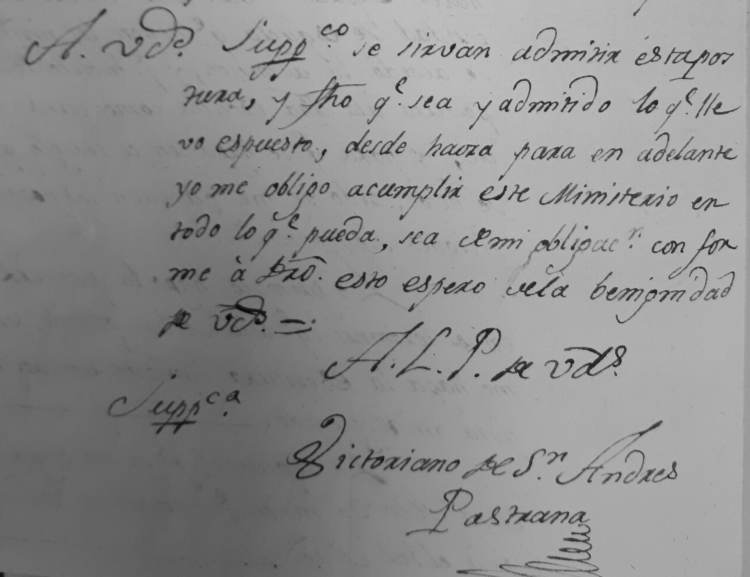 A. vds. Suppco se sirvan admitir esta pos
tura, y fho qe. sea y admitido lo qe. lle
vo espuesto, desde haora para en adelante
yo me obligo acumplir este Ministerio en
todo lo qe. pueda, sea de mi obligacn. con for
me à Dro. esto espero de la benignidad
de vds. =.
A. L. P. de vds.
Suppca.
Victoriano de Sn. Andres
Pastrana